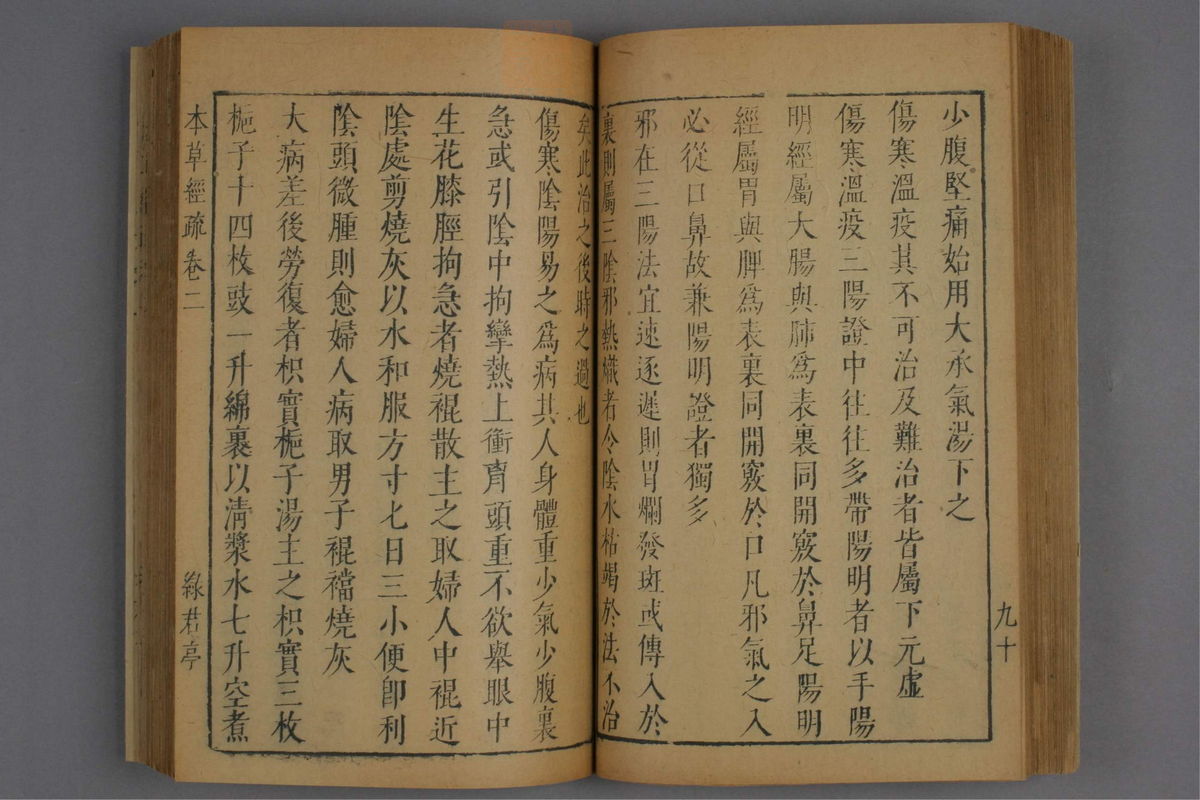 少腹堅痛始用大承氣湯下之
傷寒溫疫其不可治及難治者皆屬下元虛
傷寒溫疫三陽證中往往多帶陽明者以手陽
明經屬大腸與肺爲表裏同開竅於鼻足陽明
經屬胃與脾爲表裏同開竅於口凡邪氣之入
必從口鼻故兼陽明證者獨多
邪在三陽法宜速逐遲則胃爛發斑或傳入於
裏則屬三陰邪熱熾者令陰水枯竭於法不治
矣此治之後時之過也
傷寒陰陽易之爲病其人身體重少氣少腹裏
急或引陰中拘攣熱上衝胷頭重不欲舉眼中
生花膝脛拘急者燒裩散主之取婦人中裩近
陰處剪燒灰以水和服方寸匕日三小便卽利
陰頭微腫則愈婦人病取男子裩襠燒灰
大病差後勞復者枳實梔子湯主之枳實三枚
梔子十四枚豉一升綿裹以淸漿水七升空煮
本草經疏 卷二
綠君亭
九十